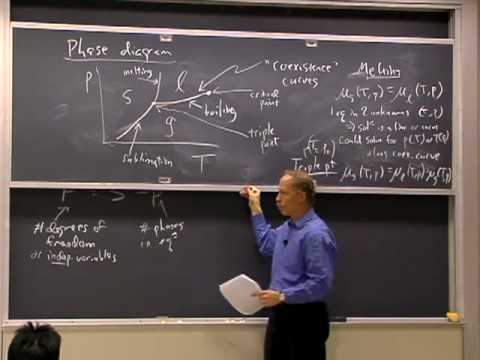 Phase diagram
P
melting
S
l
g
boiling
sublimation
T
"coexistence"
curves
critical
point
triple
point
Melting
μs(T,P) = μl(T,P)
1 eq in 2 unknowns (T,P)
⇒ solⁿ is a line or curve
Could solve for P(T) or T(P)
along coex. curve
Triple pt
μs(T,P) = μl(T,P) = μg(T,P)
F = 3 - P
# degrees of
freedom
or indep. variables
# phases
in eq